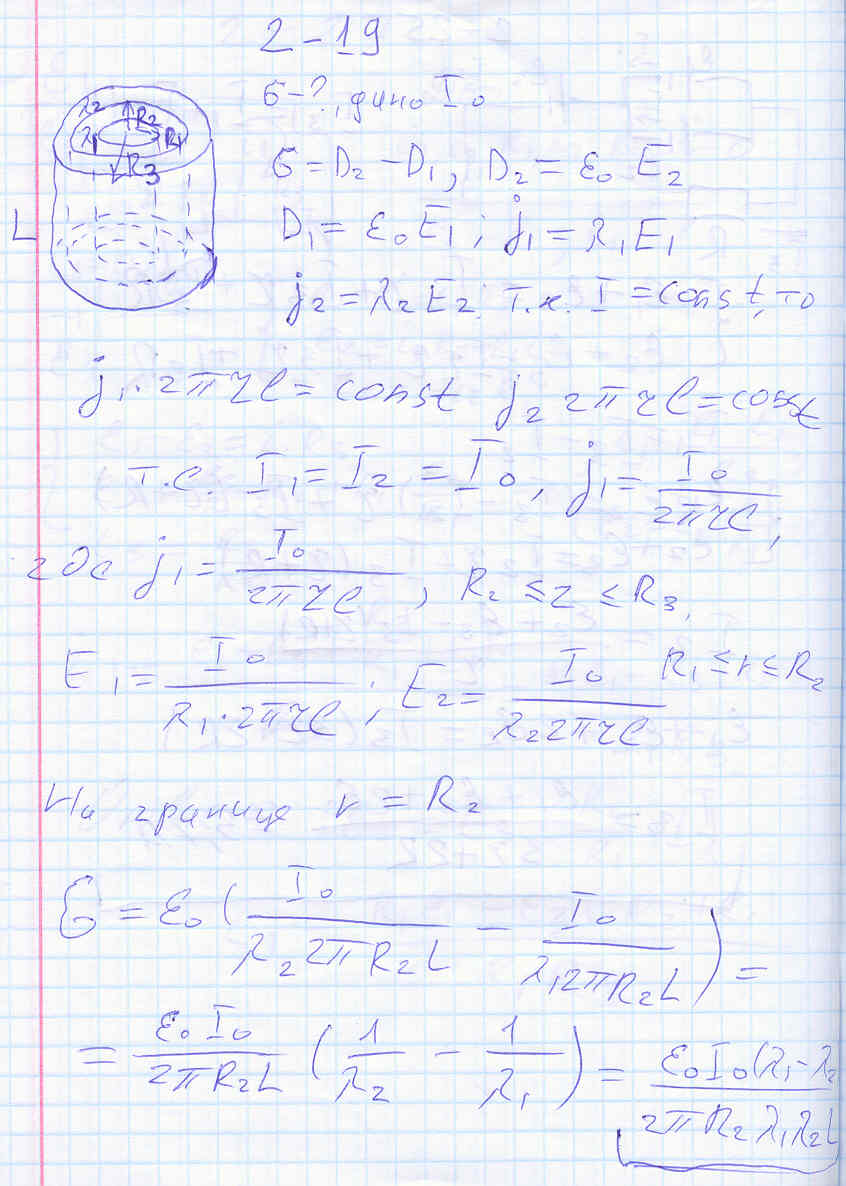 2-19
λ₂ R₂ λ₁ R₁ R₃
L
б-?, дано I₀
б = D₂ - D₁, D₂ = ε₀ E₂
D₁ = ε₀E₁; j₁ = λ₁E₁
j₂ = λ₂E₂. т.к. I = const, то
j₁·2πrl = const j₂ 2πrl = const
т.е. I₁ = I₂ = I₀, j₁ = I₀/2πrl;
где j₁ = I₀/2πrl, R₂ ≤ r ≤ R₃.
E₁ = I₀/λ₁·2πrl; E₂ = I₀/λ₂2πrl R₁ ≤ r ≤ R₂
На границе r = R₂
б = ε₀(I₀/λ₂2πR₂L - I₀/λ₁2πR₂L) =
= ε₀I₀/2πR₂L (1/λ₂ - 1/λ₁) = ε₀I₀(λ₁-λ₂/2πR₂λ₁λ₂L